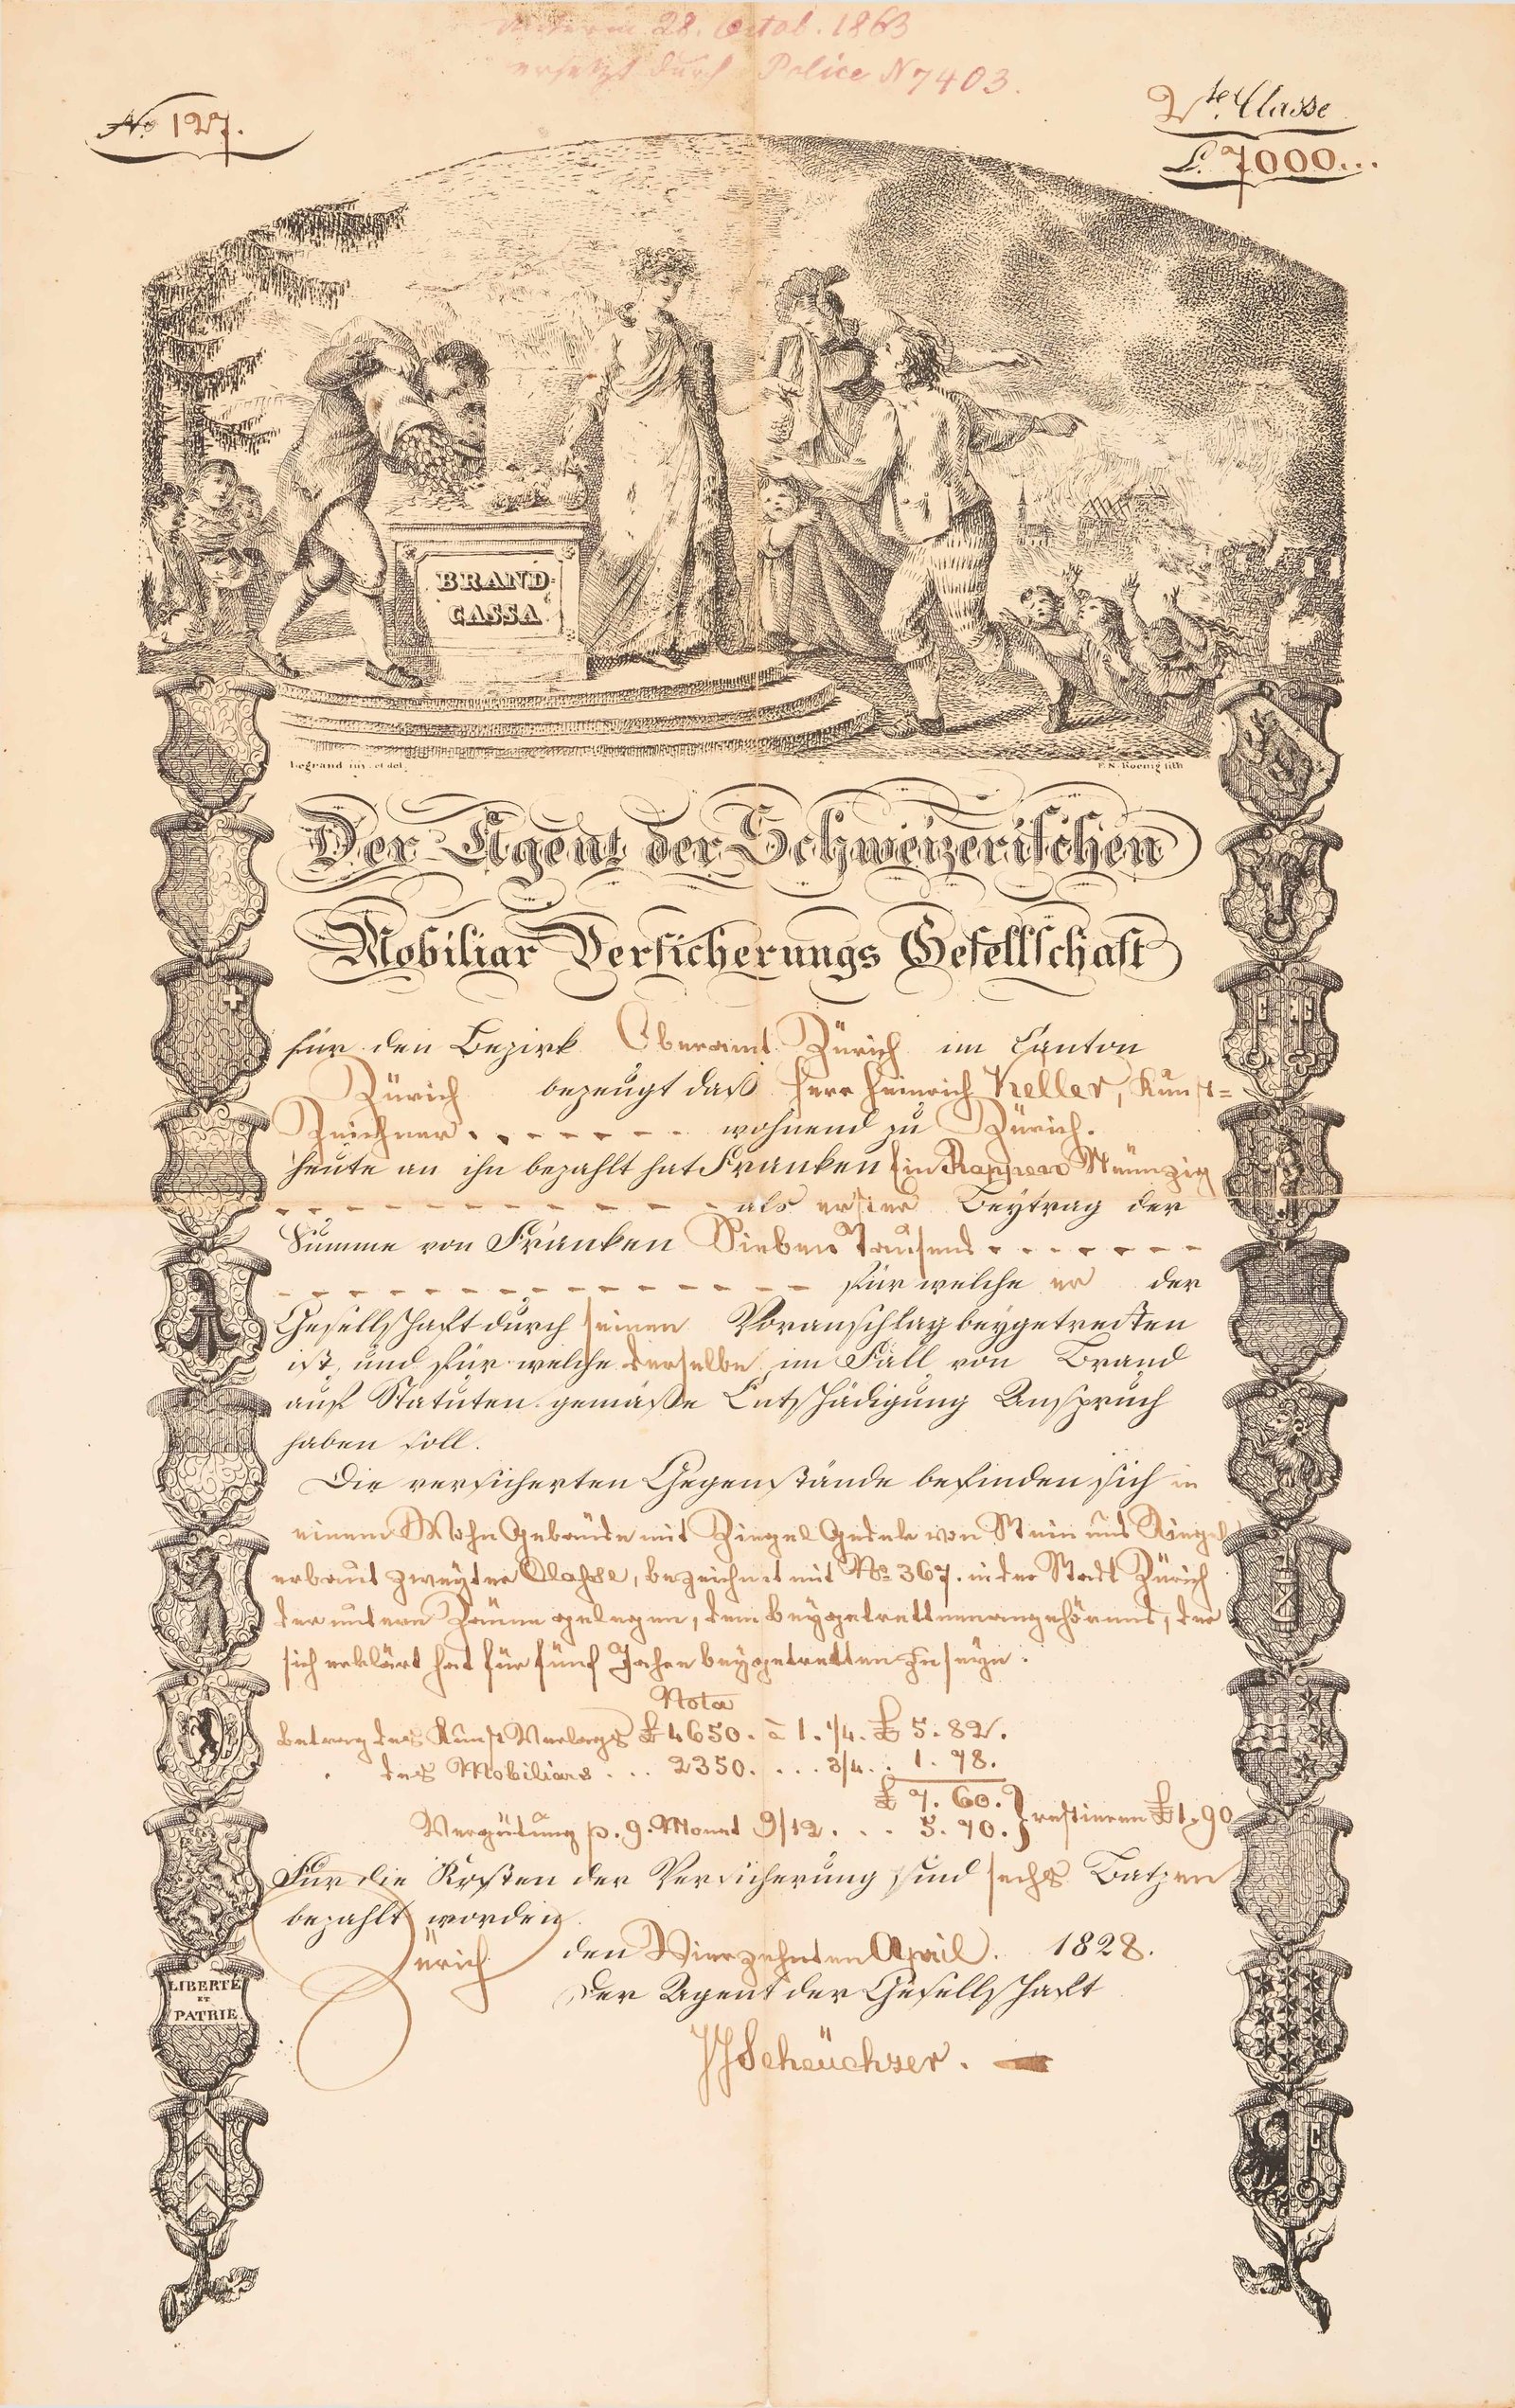 28. Octob. 1863
ersetzt durch Police N 7403.
No 127.
2te. Classe
L. 7000...
BRAND-
CASSA
Legrand inv. et del.
F. N. Koenig lith
Der Agent der Schweizerischen
Mobiliar Versicherungs Gesellschaft
für den Bezirk Oberamt Zürich im Canton
Zürich bezeugt daß Herr Heinrich Keller, Kunst=
Zeichner wohnend zu Zürich.
heute an ihn bezahlt hat Franken Ein Rappen Neünzig
als erster Beytrag der
Summe von Franken Sieben Tausend
für welche er der
Gesellschaft durch seinen Voranschlag beygetretten
ist, und für welche derselbe im Fall von Brand
auf Statuten gemäße Entschädigung Anspruch
haben soll.
Die versicherten Gegenstände befinden sich in
einem Wohn Gebäude mit Ziegel Gedek von Stein und Riegel
erbaut zweyter Classe, bezeichnet mit No. 367. in der Stadt Zürich
der untern Zäune gelegen, dem beygetrettenen angehörend, der
sich erklärt hat für fünf Jahre beygetretten zu seyn.
Nota
Betrag des Kunst Verlags £ 4650. à 1. 1/4. £ 5. 82.
des Mobiliars ... 2350. ... 3/4. . 1. 78.
£ 7. 60.
Vergütung p. 9. Monat 9/12. . . 5. 70. } restieren £ 1. 90
Für die Kosten der Versicherung sind sechs Batzen
bezahlt worden
Zürich den Vierzehnten April. 1828.
Der Agent der Gesellschaft
JJScheüchzer.
LIBERTÉ
ET
PATRIE